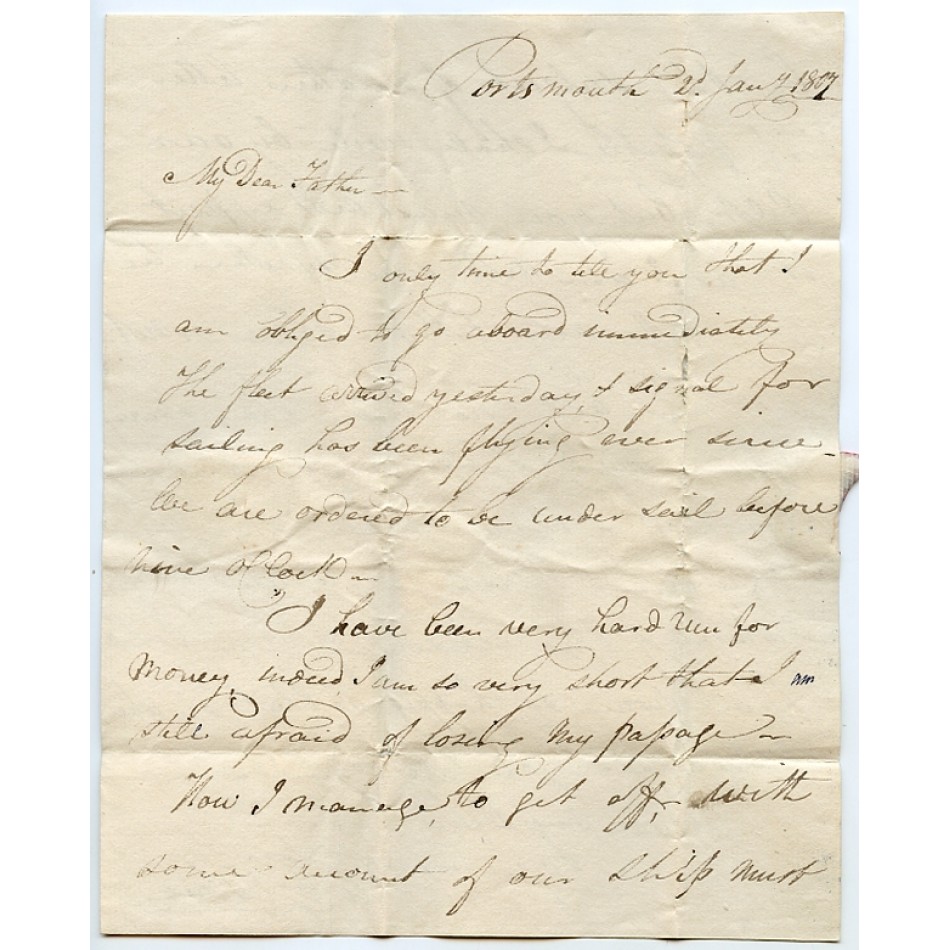 Portsmouth 2d. Jany 1807
My Dear Father —
I only time to tell you that I
am obliged to go aboard immediately
The fleet arrived yesterday, & signal for
sailing has been flying ever since –
We are ordered to be under sail before
nine o Clock —
I have been very hard run for
Money, indeed I am so very short that I am
still afraid of losing my passage —
How I manage, to get off, with
some account of our ship must